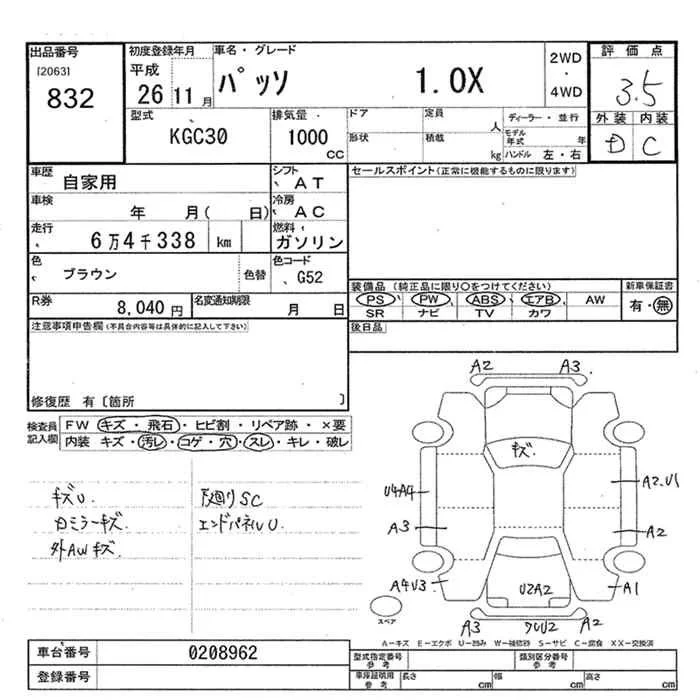 出品番号
[2063]
832
初度登録年月
平成
26 11月
車名・グレード
パッソ 1.0X
2WD
・
4WD
評価点
3.5
外装 内装
D C
型式
KGC30
排気量
1000
CC
ドア
定員
人
形状
積載
kg
ディーラー・並行
モデル年式 年
ハンドル 左・右
車歴
自家用
シフト
AT
セールスポイント(正常に機能するものに限ります)
車検
年 月( 日)
冷房
AC
走行
6万4千338 km
燃料
ガソリン
色
ブラウン
色替
色コード
G52
装備品 (純正品に限り○をつけてください)
新車保証書
PS PW ABS エアB AW
有・無
SR ナビ TV カワ
R券
8,040円
名変通知期限
月 日
後日品
注意事項申告欄(不具合内容等は具体的に記入して下さい)
修復歴 有〔箇所 〕
検査員記入欄
FW キズ・飛石・ヒビ割・リペア跡・×要
内装 キズ・汚レ・コゲ・穴・スレ・キレ・破レ
キズU
カミラーキズ
外AWキズ
下廻りSC
エンドパネルU
A2 A3
キズ
U4A4
A2.U1
A3
A2
A4U3
U2A2
A1
スペア
A3
ワレU2
A2
A−キズ E−エクボ U−凹み W−補修跡 S−サビ C−腐食 XX−交換済
車台番号
0208962
登録番号
型式指定番号
参考
類別区分番号
参考
車庫証明用
参考
長さ cm
幅 cm
高さ cm